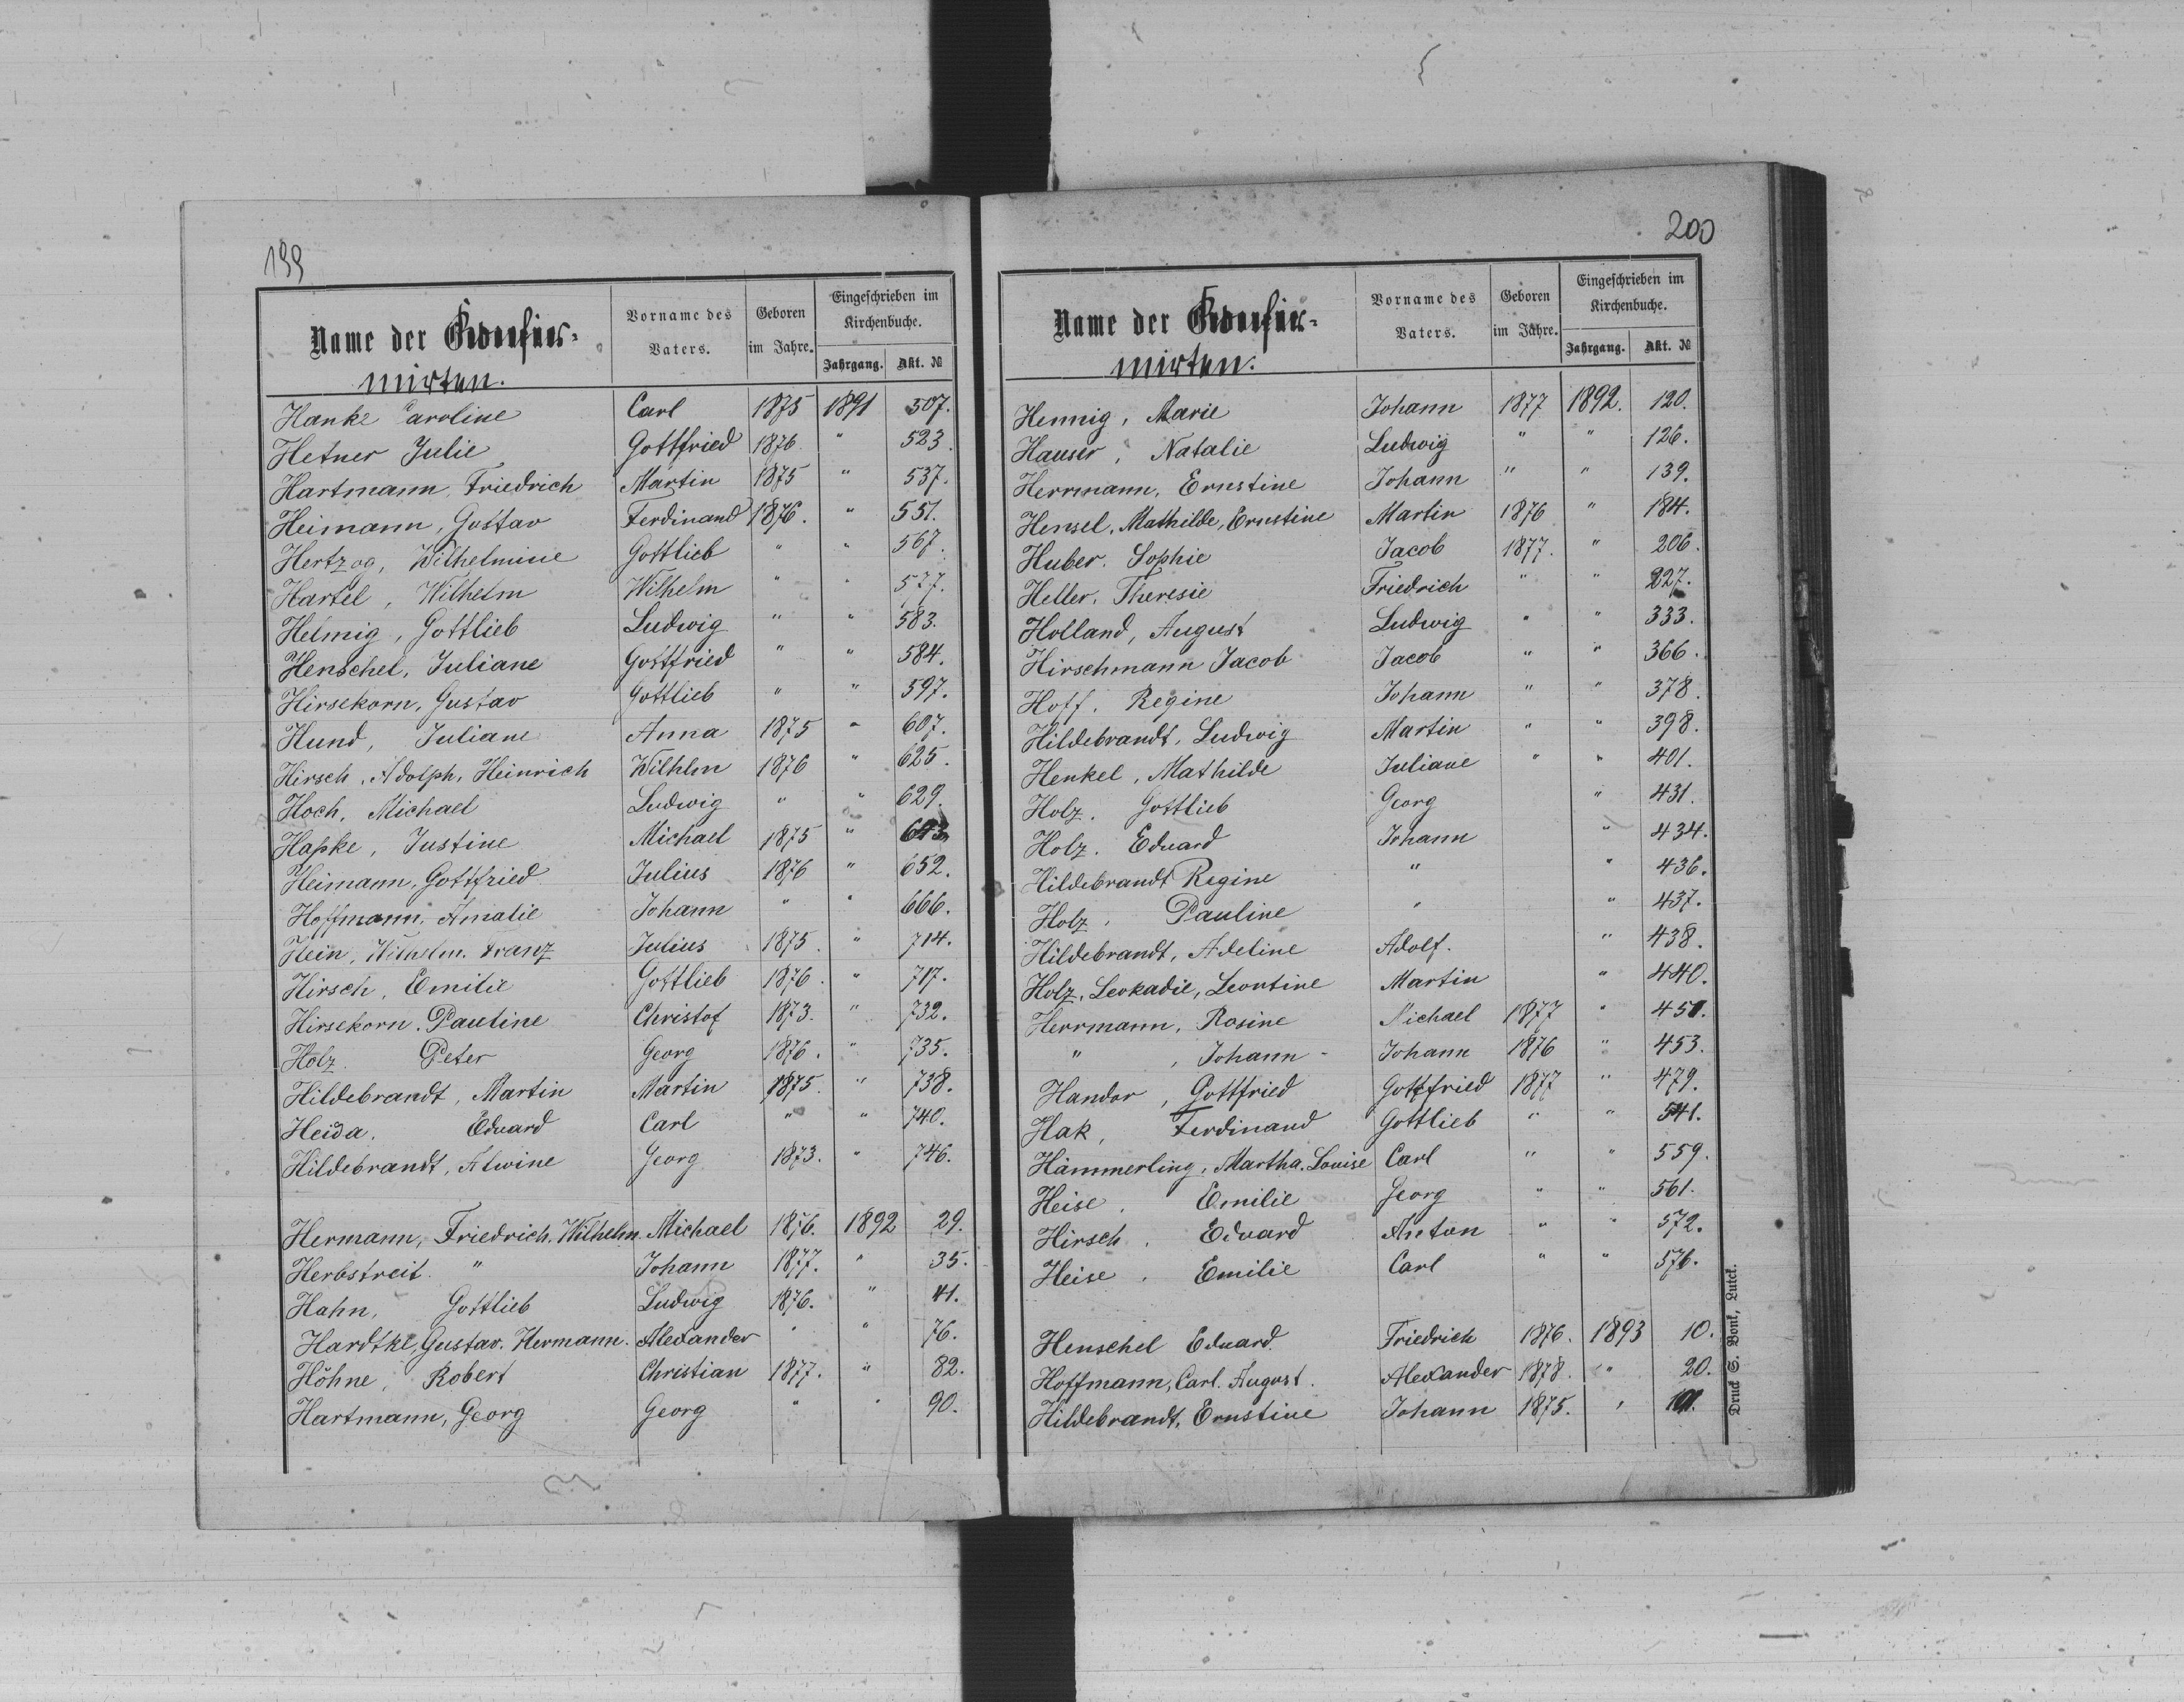 199
Name der Konfir-
mirten.
Vorname des
Vaters.
Geboren
im Jahre.
Eingeschrieben im
Kirchenbuche.
Jahrgang. Akt. №
Hanke Caroline Carl 1875 1891 507.
Hetner Julie Gottfried 1876 " 523.
Hartmann, Friedrich Martin 1875 " 537.
Heimann, Gustav Ferdinand 1876. " 551.
Hertzog, Wilhelmine Gottlieb " " 567.
Hartel, Wilhelm Wilhelm " " 577.
Helmig, Gottlieb Ludwig " " 583.
Henschel, Juliane Gottfried " " 584.
Hirsekorn, Gustav Gottlieb " " 597.
Hund, Juliane Anna 1875 " 607.
Hirsch, Adolph, Heinrich Wilhlm 1876 " 625.
Hoch, Michael Ludwig " " 629.
Hapke, Justine Michael 1875 " 643.
Heimann, Gottfried Julius 1876 " 652.
Hoffmann, Amalie Johann " " 666.
Hein, Wilhelm. Franz Julius 1875. " 714.
Hirsch, Emilie Gottlieb 1876. " 717.
Hirsekorn. Pauline Christof 1873. " 732.
Holz. Peter Georg 1876. " 735.
Hildebrandt, Martin Martin 1875. " 738.
Heida. Eduard Carl " " 740.
Hildebrandt, Alwine Georg 1873. " 746.
Hermann, Friedrich. Wilhelm. Michael 1876. 1892 29.
Herbstreit. " Johann 1877. " 35.
Hahn, Gottlieb Ludwig 1876. " 41.
Hardtke, Gustav. Hermann. Alexander " " 76.
Höhne, Robert Christian 1877. " 82.
Hartmann, Georg Georg " " 90.
200
Name der Konfir-
mirten.
Vorname des
Vaters.
Geboren
im Jahre.
Eingeschrieben im
Kirchenbuche.
Jahrgang. Akt. №
Hennig, Marie Johann 1877 1892. 120.
Hauser, Natalie Ludwig " " 126.
Herrmann, Ernstine Johann " " 139.
Hensel, Mathilde, Ernstine Martin 1876 " 184.
Huber. Sophie Jacob 1877. " 206.
Heller. Theresie Friedrich " " 227.
Holland, August Ludwig " " 333.
Hirschmann Jacob Jacob " " 366.
Hoff. Regine Johann " " 378.
Hildebrandt, Ludwig Martin " " 398.
Henkel, Mathilde Juliane " " 401.
Holz. Gottlieb Georg " 431.
Holz. Eduard Johann " 434.
Hildebrandt Regine " " 436.
Holz, Pauline " " 437.
Hildebrandt, Adeline Adolf. " 438.
Holz, Leokadie, Leontine Martin " 440.
Herrmann, Rosine Michael 1877 " 451.
" , Johann Johann 1876 " 453.
Handor, Gottfried Gottfried 1877 " 479.
Hak, Ferdinand Gottlieb " " 541.
Hämmerling, Martha. Louise Carl " " 559.
Heise, Emilie Georg " " 561.
Hirsch. Eduard Anton " " 572.
Heise. Emilie Carl " " 576.
Henschel Eduard. Friedrich 1876. 1893 10.
Hoffmann, Carl. August. Alexander 1878. " 20.
Hildebrandt, Ernstine Johann 1875. "
Druck S. Bonk, Lutck.